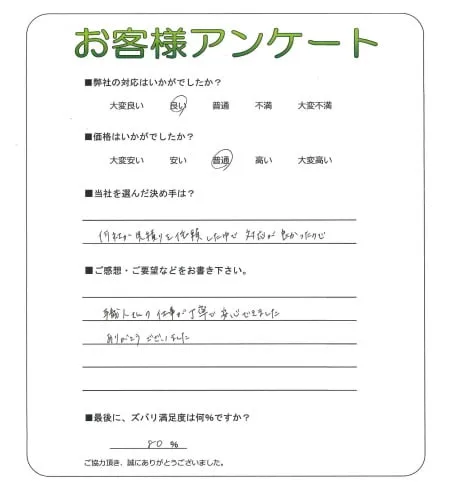 お客様アンケート
■弊社の対応はいかがでしたか？
大変良い 良い 普通 不満 大変不満
■価格はいかがでしたか？
大変安い 安い 普通 高い 大変高い
■当社を選んだ決め手は？
何社か見積りを依頼した中で 対応が良かったので
■ご感想・ご要望などをお書き下さい。
職人さんの仕事が丁寧で安心できました
ありがとうございました
■最後に、ズバリ満足度は何％ですか？
80 ％
ご協力頂き、誠にありがとうございました。